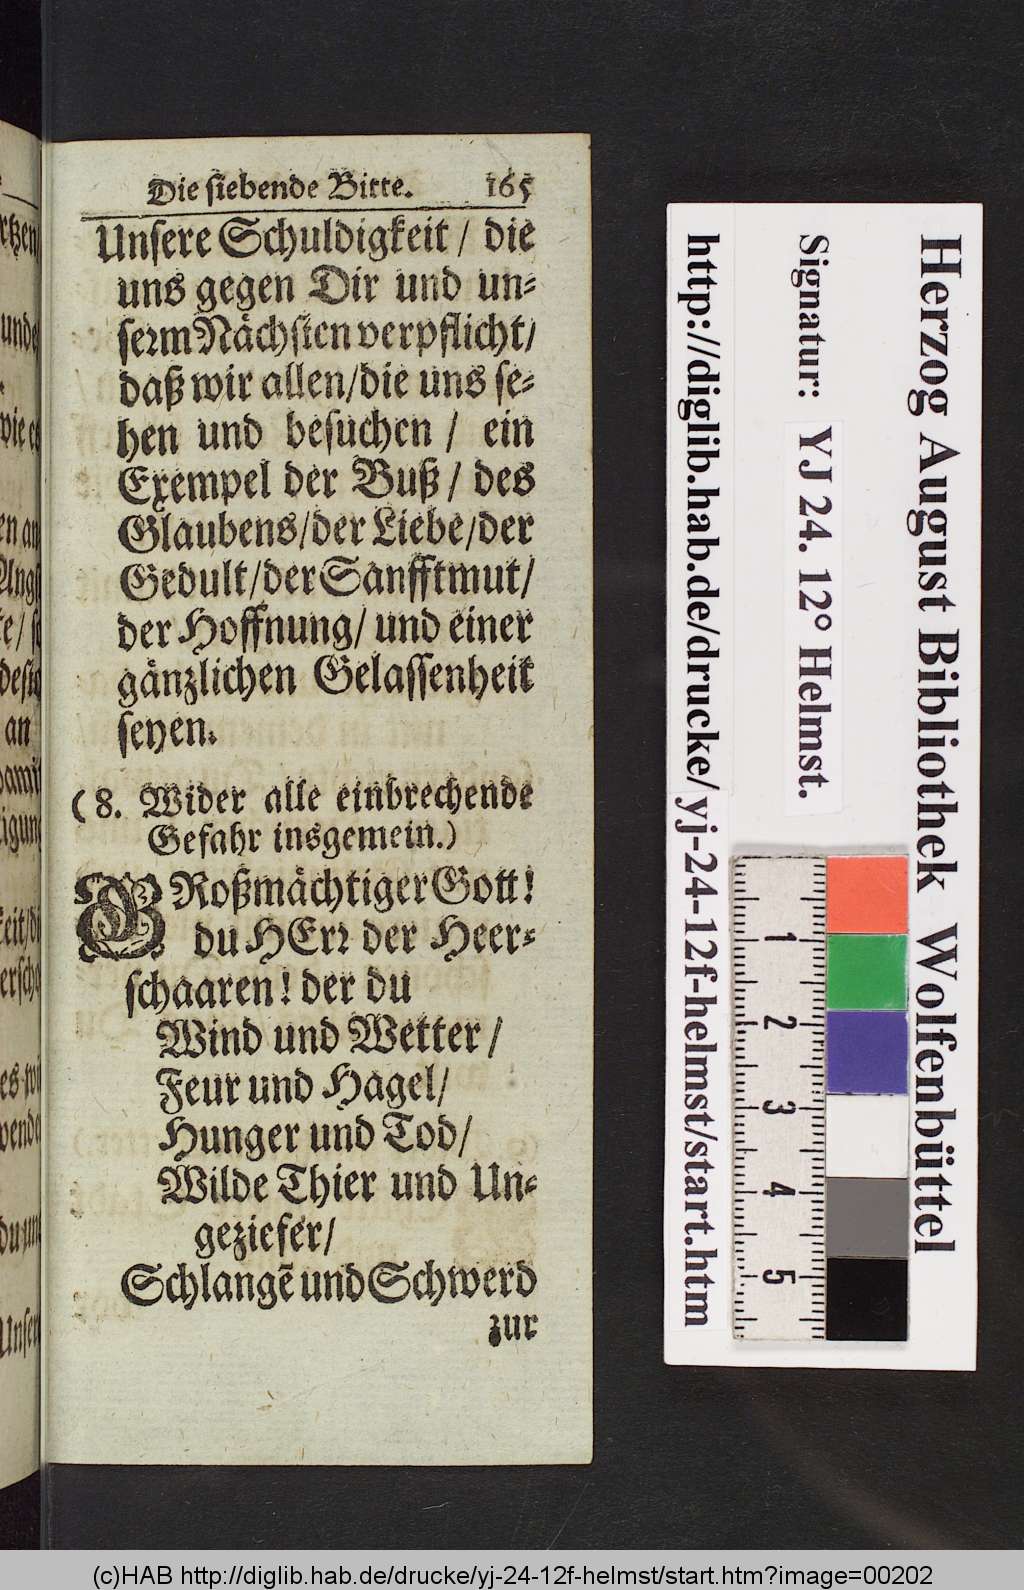 Die siebende Bitte. 165
Unsere Schuldigkeit / die
uns gegen Dir und un-
serm Nächsten verpflicht/
daß wir allen/die uns se-
hen und besuchen / ein
Exempel der Buß / des
Glaubens/der Liebe/der
Gedult/der Sanfftmut/
der Hoffnung/ und einer
gänzlichen Gelassenheit
seyen.
(8. Wider alle einbrechende
Gefahr insgemein.)
GRoßmächtiger Gott!
du HErr der Heer-
schaaren! der du
Wind und Wetter /
Feur und Hagel/
Hunger und Tod/
Wilde Thier und Un-
geziefer/
Schlangẽ und Schwerd
zur
Herzog August Bibliothek Wolfenbüttel
Signatur: YJ 24. 12° Helmst.
http://diglib.hab.de/drucke/yj-24-12f-helmst/start.htm
1
2
3
4
5
(c)HAB http://diglib.hab.de/drucke/yj-24-12f-helmst/start.htm?image=00202